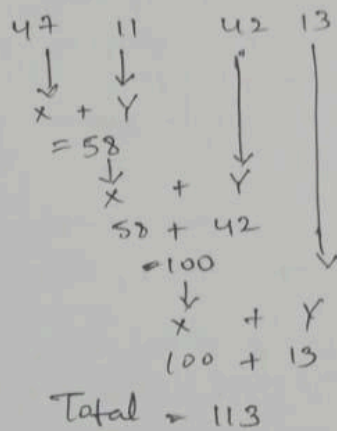 47 11 42 13
X + Y
= 58
X + Y
58 + 42
= 100
X + Y
100 + 13
Total = 113